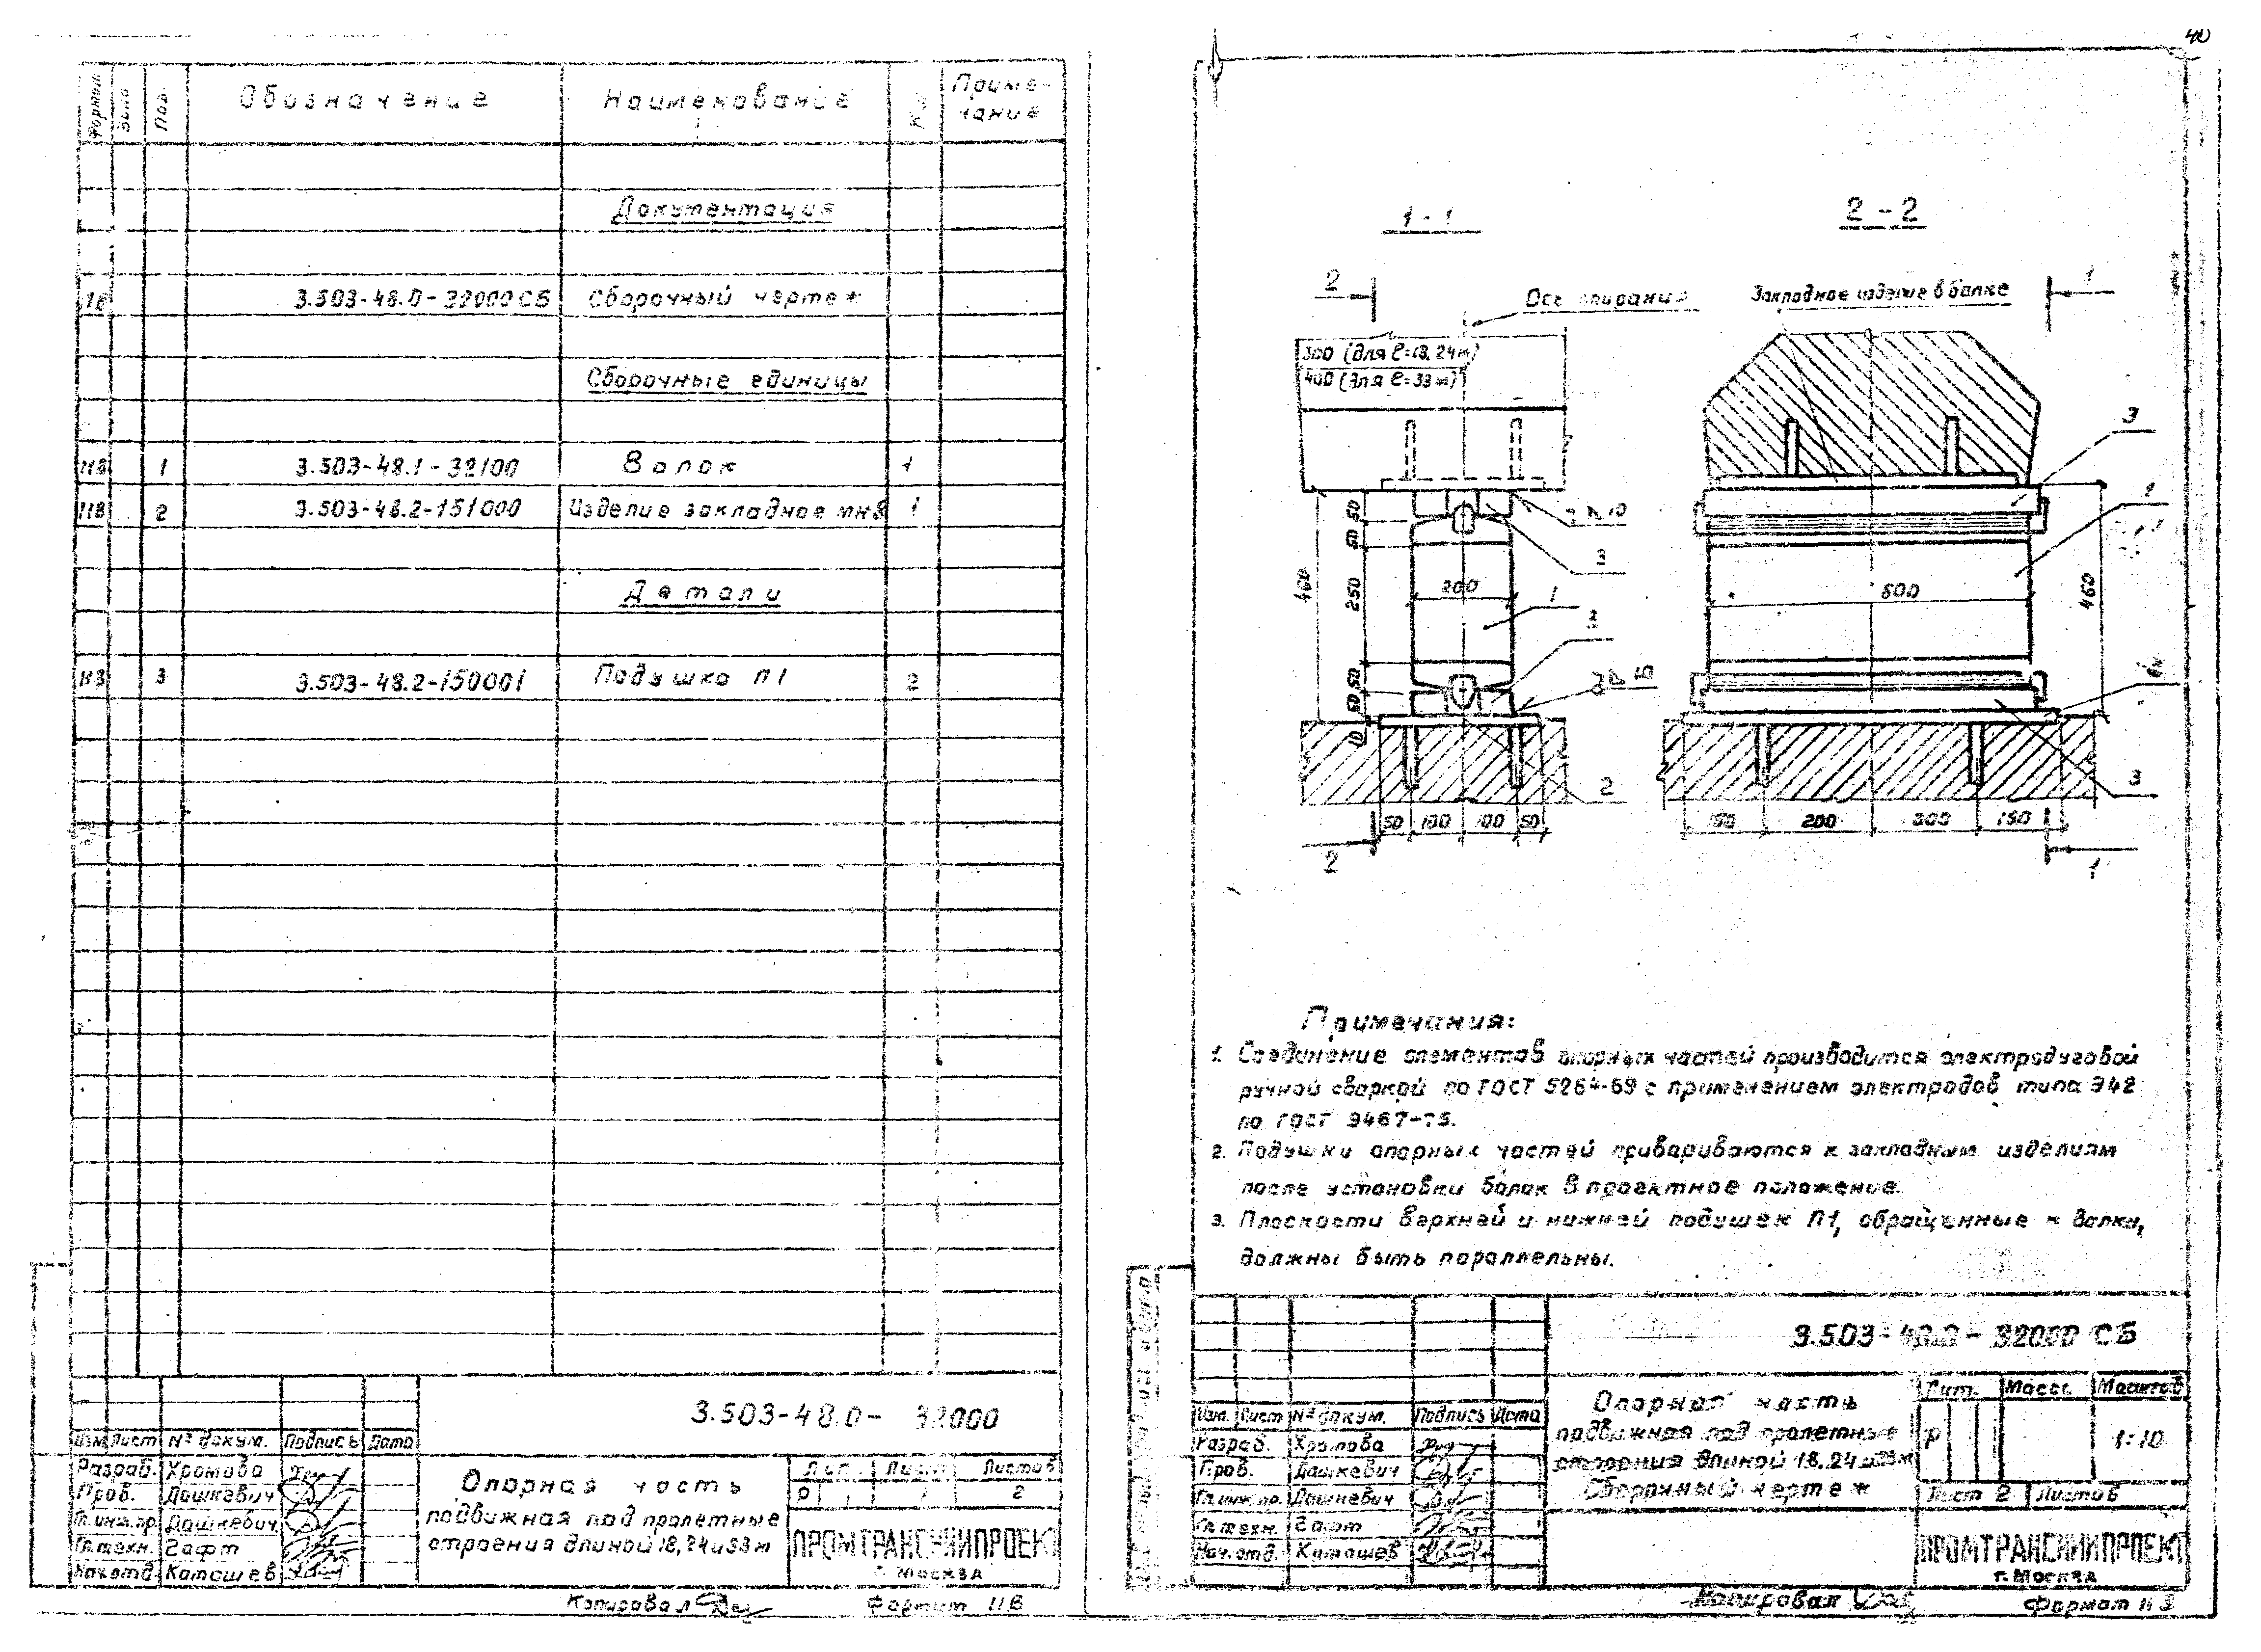 40
Формат Зона Поз. Обозначение Наименование Кол Приме-
чание
Документация
3.503-48.0-32000СБ Сборочный чертеж
Сборочные единицы
11В 1 3.503-48.1-32100 Валок 1
11В 2 3.503-48.2-151000 Изделие закладное мн8 1
Детали
3 3.503-48.2-150001 Подушка П1 2
3.503-48.0- 32000
Изм. Лист № докум. Подпись Дата
Разраб. Хромова
Пров. Дашкевич
Гл.инж.пр. Дашкевич
Гл.техн. Гафт
Нач.отд. Каташев
Опорная часть
подвижная под пролетные
строения длиной 18,24 и 33 м
Лит. Лист Листов
Р 2
ПРОМТРАНСНИИПРОЕКТ
г. Москва
Копировал
Формат 11В
1-1
2-2
2
Ось опирания
Закладное изделие в балке
1
300 (для ℓ=18, 24м)
400 (для ℓ=33м)
3
1
50
50
10
3
460
250
200
1
3
600
460
50
50
10
10
2
2
3
50 100 100 50
150 200 200 150
2
1
Примечания:
1. Соединение элементов опорных частей производится электродуговой
ручной сваркой по ГОСТ 5264-69 с применением электродов типа Э42
по ГОСТ 9467-75.
2. Подушки опорных частей привариваются к закладным изделиям
после установки балок в проектное положение.
3. Плоскости верхней и нижней подушек П1, обращенные к валку,
должны быть параллельны.
3.503-48.0-32000 СБ
Изм. Лист № докум. Подпись Дата
Разраб. Хромова
Пров. Дашкевич
Гл.инж.пр. Дашкевич
Гл.техн. Гафт
Нач.отд. Каташев
Опорная часть
подвижная под пролетные
строения длиной 18,24 и 33м
Сборочный чертеж
Лит. Масса Масштаб
Р 1:10
Лист 2 Листов
ПРОМТРАНСНИИПРОЕКТ
г. Москва
Копировал
Формат 11В